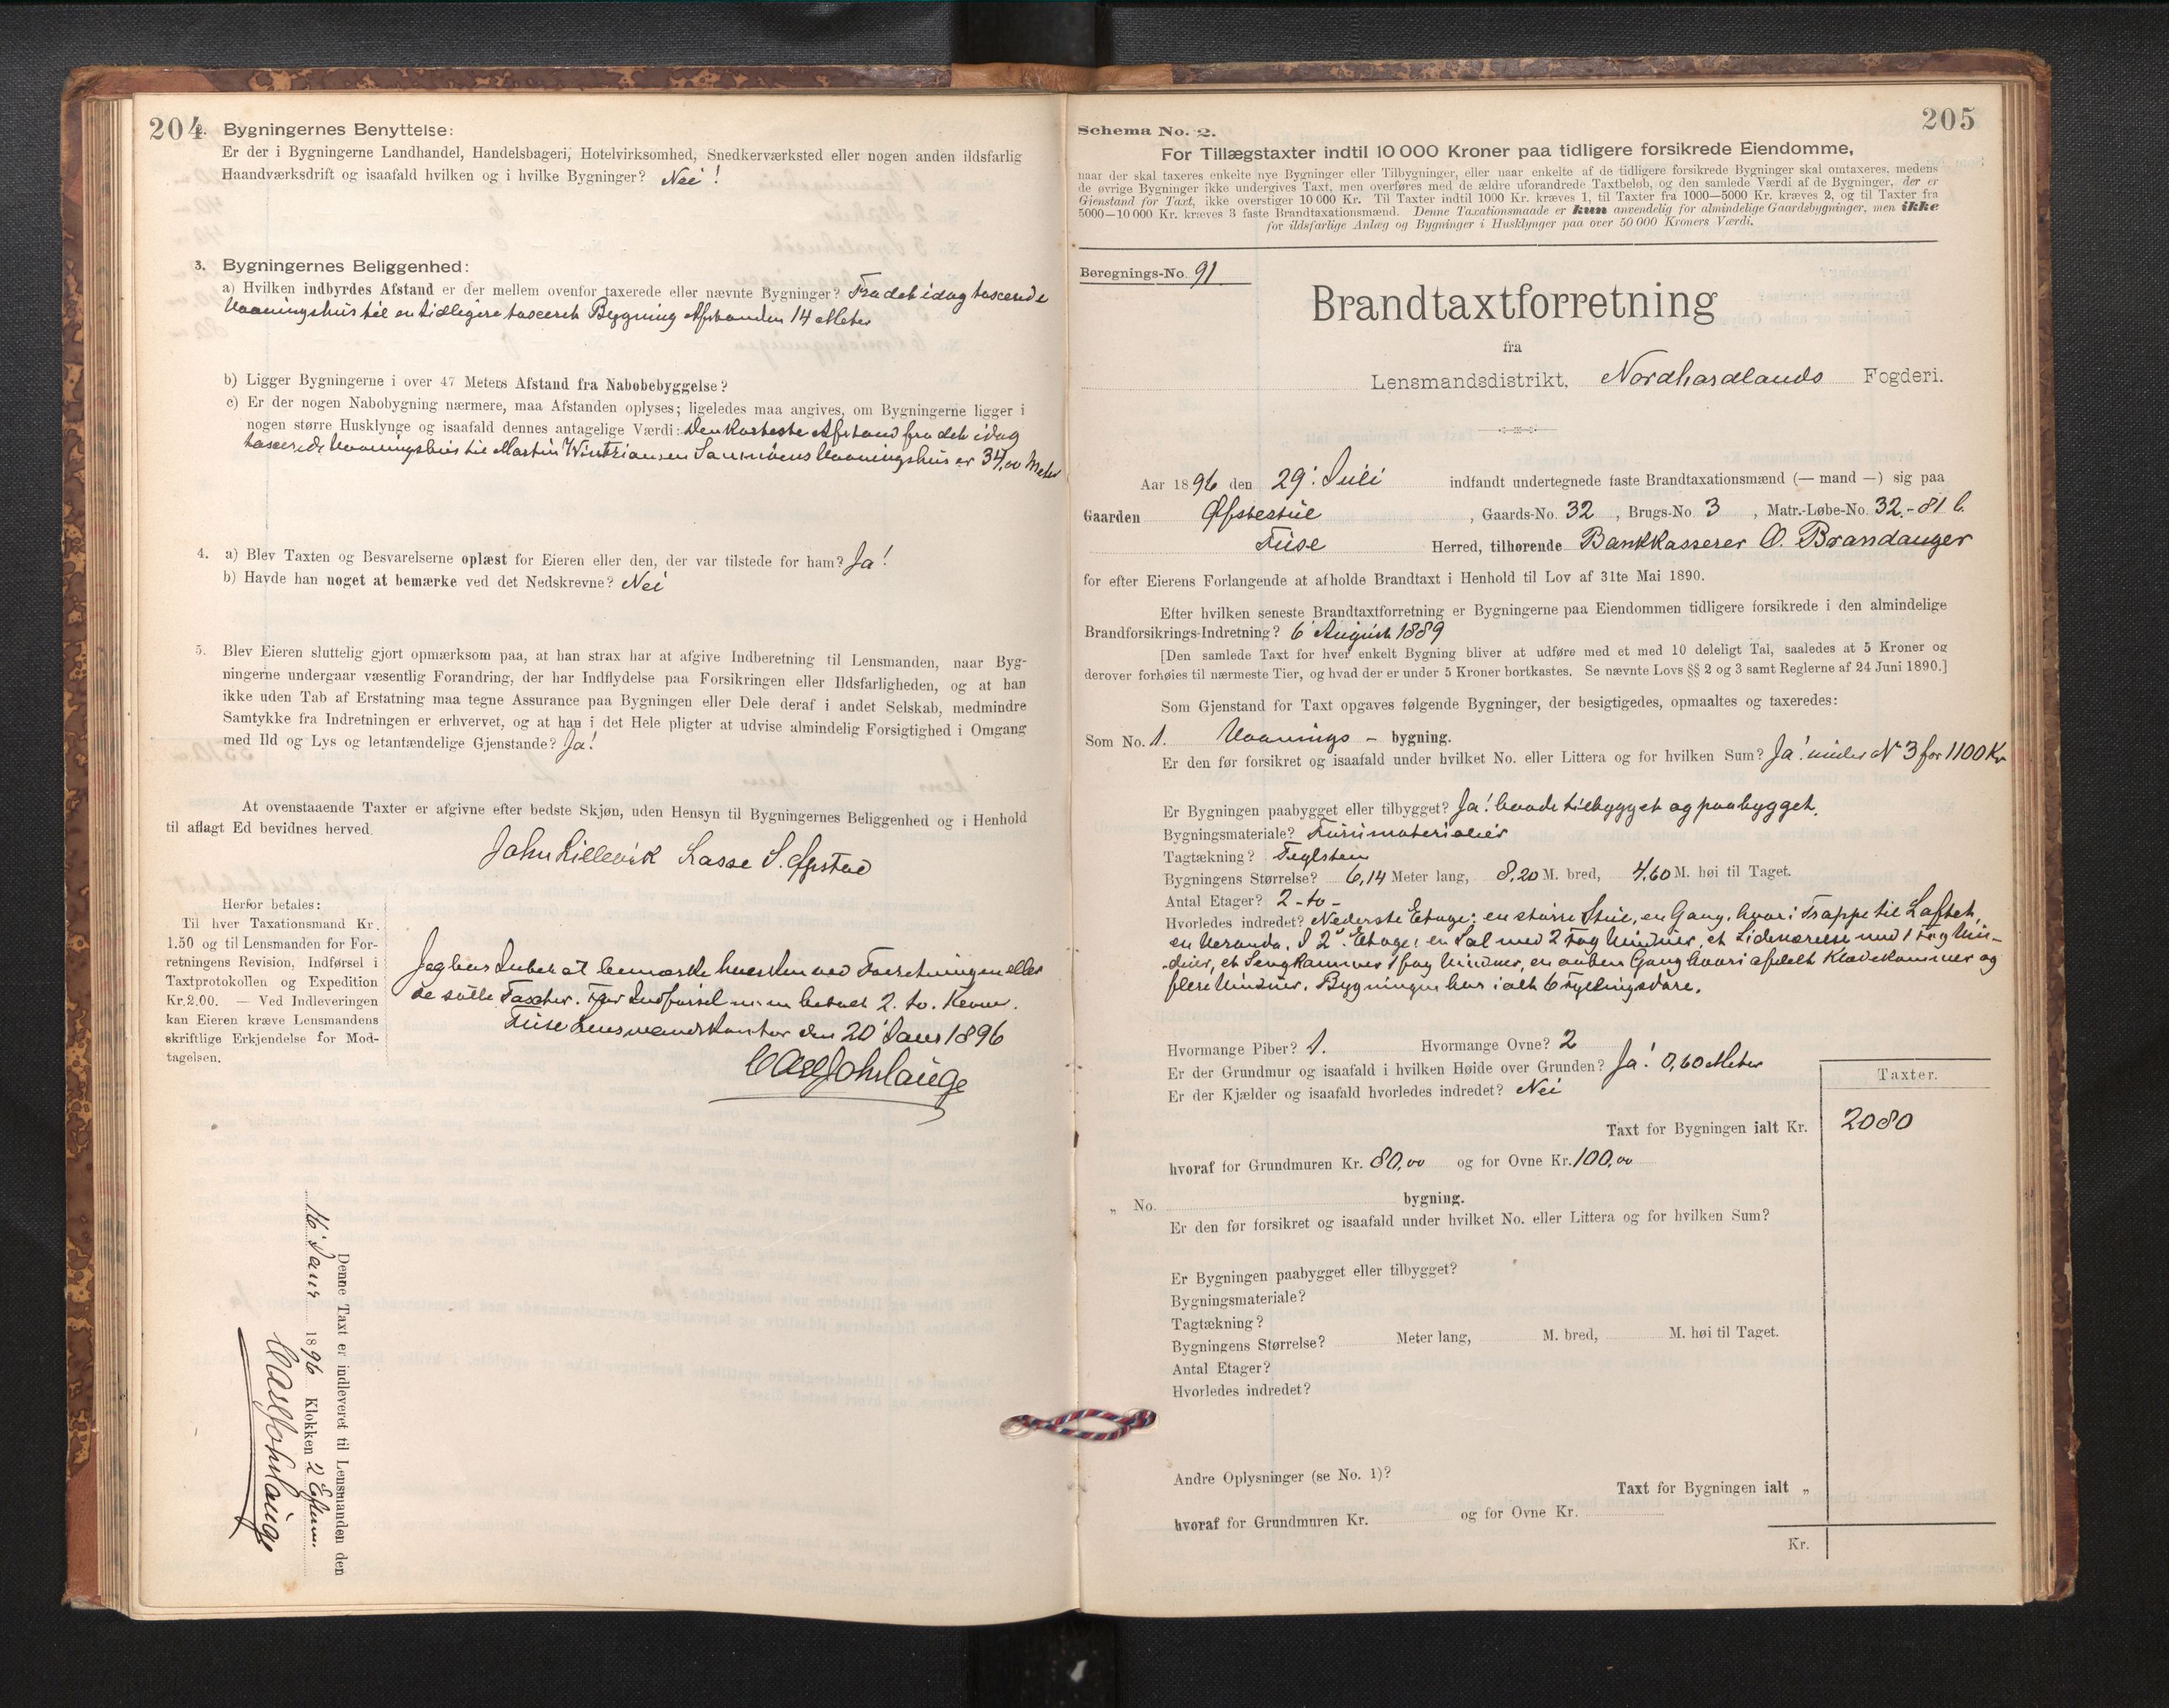 204
2. Bygningernes Benyttelse:
Er der i Bygningerne Landhandel, Handelsbageri, Hotelvirksomhed, Snedkerværksted eller nogen anden ildsfarlig
Haandværksdrift og isaafald hvilken og i hvilke Bygninger? Nei!
3. Bygningernes Beliggenhed:
a) Hvilken indbyrdes Afstand er der mellem ovenfor taxerede eller nævnte Bygninger? Fra det idag taxerede
Vaaningshus til en tidligere taxeret Bygning Afstanden 14 Meter
b) Ligger Bygningerne i over 47 Meters Afstand fra Nabobebyggelse?
c) Er der nogen Nabobygning nærmere, maa Afstanden oplyses; ligeledes maa angives, om Bygningerne ligger i
nogen større Husklynge og isaafald dennes antagelige Værdi: Den korteste Afstand fra det idag
taxerede Vaaningshus til Martin Vaaningshus er 34,00 Meter
4. a) Blev Taxten og Besvarelserne oplæst for Eieren eller den, der var tilstede for ham? Ja!
b) Havde han noget at bemærke ved det Nedskrevne? Nei
5. Blev Eieren sluttelig gjort opmærksom paa, at han strax har at afgive Indberetning til Lensmanden, naar Byg-
ningerne undergaar væsentlig Forandring, der har Indflydelse paa Forsikringen eller Ildsfarligheden, og at han
ikke uden Tab af Erstatning maa tegne Assurance paa Bygningen eller Dele deraf i andet Selskab, medmindre
Samtykke fra Indretningen er erhvervet, og at han i det Hele pligter at udvise almindelig Forsigtighed i Omgang
med Ild og Lys og letantændelige Gjenstande? Ja!
At ovenstaaende Taxter er afgivne efter bedste Skjøn, uden Hensyn til Bygningernes Beliggenhed og i Henhold
til aflagt Ed bevidnes herved.
John Lillevik Lasse S.
Herfor betales:
Til hver Taxationsmand Kr.
1.50 og til Lensmanden for For-
retningens Revision, Indførsel i
Taxtprotokollen og Expedition
Kr. 2.00. — Ved Indleveringen
kan Eieren kræve Lensmandens
skriftlige Erkjendelse for Mod-
tagelsen.
Jeg har Intet at bemærke hverken ved Forretningen eller
de satte Taxter. For Indførsel m.m. betalt 2. to. Kroner.
Fuse Lensmandskontor den 20' Janr 1896
Carl Joh Lange
Denne Taxt er indleveret til Lensmanden den
16' Janr 1896 Klokken 2 Efterm.
Carl Joh Lange
205
Schema No. 2.
For Tillægstaxter indtil 10 000 Kroner paa tidligere forsikrede Eiendomme,
naar der skal taxeres enkelte nye Bygninger eller Tilbygninger, eller naar enkelte af de tidligere forsikrede Bygninger skal omtaxeres, medens
de øvrige Bygninger ikke undergives Taxt, men overføres med de ældre uforandrede Taxtbeløb, og den samlede Værdi af de Bygninger, der er
Gjenstand for Taxt, ikke overstiger 10 000 Kr. Til Taxter indtil 1000 Kr. kræves 1, til Taxter fra 1000—5000 Kr. kræves 2, og til Taxter fra
5000—10 000 Kr. kræves 3 faste Brandtaxationsmænd. Denne Taxationsmaade er kun anvendelig for almindelige Gaardsbygninger, men ikke
for ildsfarlige Anlæg og Bygninger i Husklynger paa over 50 000 Kroners Værdi.
Beregnings-No. 91
Brandtaxtforretning
fra
Lensmandsdistrikt, Nordhordlands Fogderi.
Aar 1896 den 29' Juli indfandt undertegnede faste Brandtaxationsmænd (— mand —) sig paa
Gaarden Øfstestue, Gaards-No. 32, Brugs-No. 3, Matr.-Løbe-No. 32.-81 b.
Fuse Herred, tilhørende Bankkasserer O. Brandanger
for efter Eierens Forlangende at afholde Brandtaxt i Henhold til Lov af 31te Mai 1890.
Efter hvilken seneste Brandtaxtforretning er Bygningerne paa Eiendommen tidligere forsikrede i den almindelige
Brandforsikrings-Indretning? 6' August 1889
[Den samlede Taxt for hver enkelt Bygning bliver at udføre med et med 10 deleligt Tal, saaledes at 5 Kroner og
derover forhøies til nærmeste Tier, og hvad der er under 5 Kroner bortkastes. Se nævnte Lovs §§ 2 og 3 samt Reglerne af 24 Juni 1890.]
Som Gjenstand for Taxt opgaves følgende Bygninger, der besigtigedes, opmaaltes og taxeredes:
Som No. 1. Vaanings - bygning.
Er den før forsikret og isaafald under hvilket No. eller Littera og for hvilken Sum? Ja! under No 3 for 1100 Kr
Er Bygningen paabygget eller tilbygget? Ja! baade tilbygget og paabygget.
Bygningsmateriale? Furumaterialier
Tagtækning? Teglsten
Bygningens Størrelse? 6,14 Meter lang, 8,20 M. bred, 4,60 M. høi til Taget.
Antal Etager? 2 - to -
Hvorledes indredet? Nederste Etage: en større Stue, en Gang, hvori Trappe til Loftet,
en Veranda. I 2' Etage: en Sal med 2 Fag Vinduer, et Sideværelse med 1 Fag Vin-
duer, et Sengkammer 1 fag Vinduer, en aaben Gang hvori afdelt Klædekammer og
flere Vinduer. Bygningen har ialt 6 Fyllingsdøre.
Hvormange Piber? 1. Hvormange Ovne? 2
Er der Grundmur og isaafald i hvilken Høide over Grunden? Ja! 0,60 Meter
Er der Kjælder og isaafald hvorledes indredet? Nei
Taxter.
Taxt for Bygningen ialt Kr. 2080
hvoraf for Grundmuren Kr. 80,00 og for Ovne Kr. 100,00
„ No. bygning.
Er den før forsikret og isaafald under hvilket No. eller Littera og for hvilken Sum?
Er Bygningen paabygget eller tilbygget?
Bygningsmateriale?
Tagtækning?
Bygningens Størrelse? Meter lang, M. bred, M. høi til Taget.
Antal Etager?
Hvorledes indredet?
Andre Oplysninger (se No. 1)?
Taxt for Bygningen ialt „
hvoraf for Grundmuren Kr. og for Ovne Kr.
Kr.